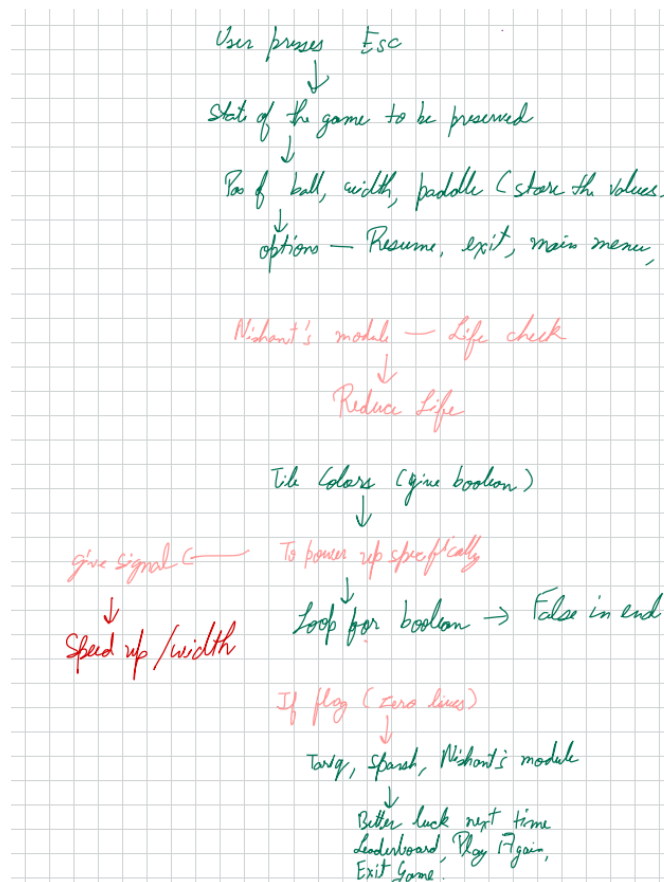 User presses Esc
State of the game to be preserved
Pos of ball, width, paddle (store the values.
options — Resume, exit, main menu,
Nishant's module — Life check
Reduce Life
Tile Colors (give boolean)
give signal — To power up specifically
Speed up /width
Loop for boolean → False in end
If flag (zero lives)
Tariq, Sparsh, Nishant's module
Better luck next time
Leaderboard, Play Again,
Exit Game.